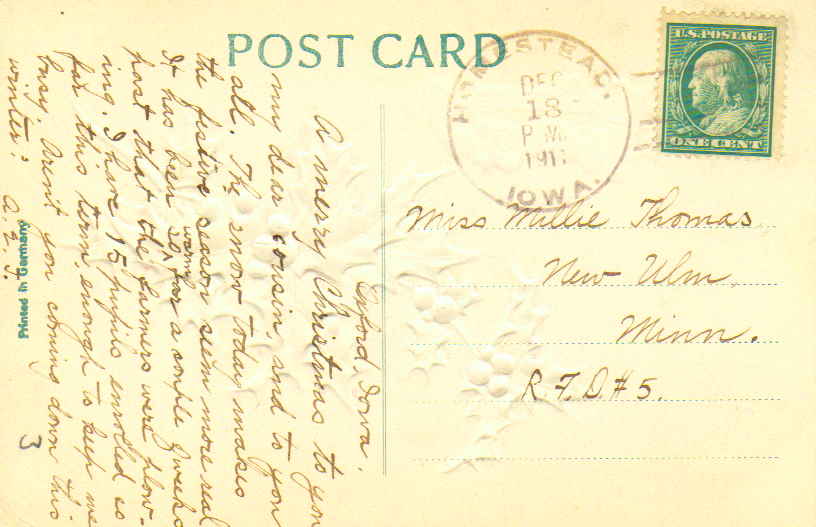 POST CARD
HOMESTEAD,
DEC
18
P M
1911
IOWA.
U.S. POSTAGE
ONE CENT
Miss Millie Thomas
New Ulm,
Minn.
R.F.D.#5.
Oxford, Iowa.
A merry Christmas to you
my dear cousin, and to you
all. The snow today makes
the festive season seem more real
It has been so warm for a couple weeks
past that the farmers were plow-
ing. I have 15 pupils enrolled so
far this term, enough to keep me
busy. Aren't you coming down this
winter?
Printed in Germany
3